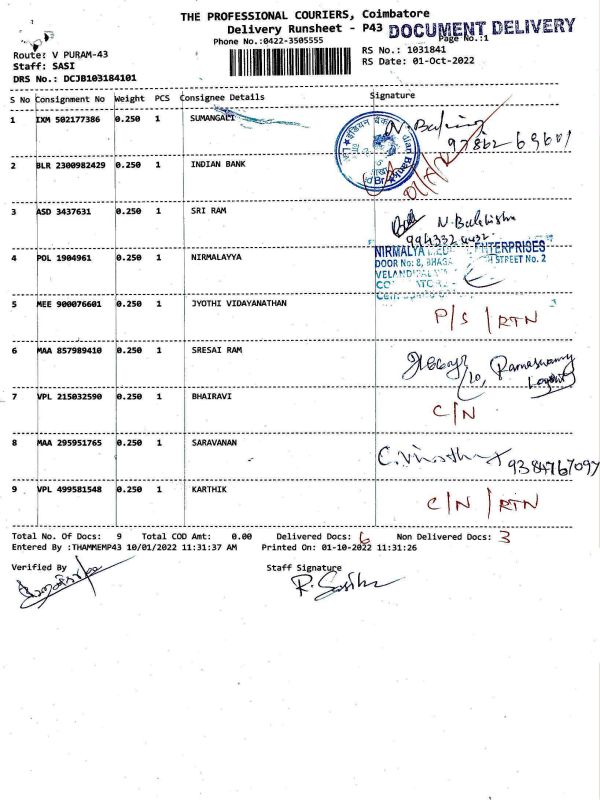 THE PROFESSIONAL COURIERS, Coimbatore
Delivery Runsheet - P43 DOCUMENT DELIVERY
Phone No.:0422-3505555 Page No.:1
Route: V PURAM-43 RS No.: 1031841
Staff: SASI RS Date: 01-Oct-2022
DRS No.: DCJB103184101
S No Consignment No Weight PCS Consignee Details Signature
1 IXM 502177386 0.250 1 SUMANGALI
2 BLR 2300982429 0.250 1 INDIAN BANK
3 ASD 3437631 0.250 1 SRI RAM
4 POL 1904961 0.250 1 NIRMALAYYA NIRMALYA ENTERPRISES
DOOR No: 8, STREET No. 2
5 MEE 900076601 0.250 1 JYOTHI VIDAYANATHAN P/S / RTN
6 MAA 857989410 0.250 1 SRESAI RAM
10, Ramaswamy
Layout
7 VPL 215032590 0.250 1 BHAIRAVI C/N
8 MAA 295951765 0.250 1 SARAVANAN 9384767097
9 VPL 499581548 0.250 1 KARTHIK C/N / RTN
Total No. Of Docs: 9 Total COD Amt: 0.00 Delivered Docs: 6 Non Delivered Docs: 3
Entered By :THAMMEMP43 10/01/2022 11:31:37 AM Printed On: 01-10-2022 11:31:26
Verified By Staff Signature